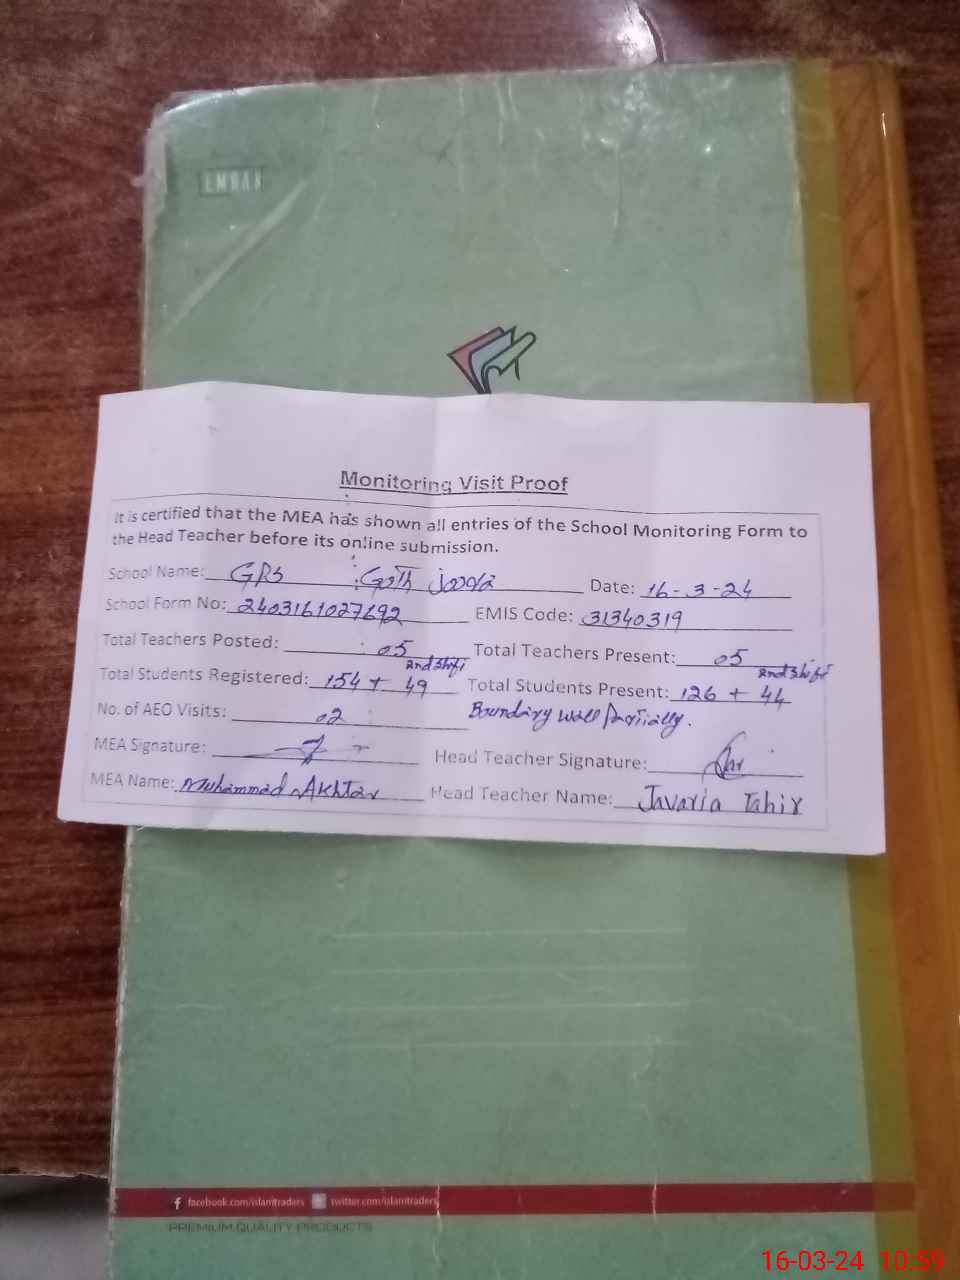 EMRAN
Monitoring Visit Proof
It is certified that the MEA has shown all entries of the School Monitoring Form to
the Head Teacher before its online submission.
School Name: GPS Goth Date: 16-3-24
School Form No: 2403161027692 EMIS Code: 31340319
Total Teachers Posted: 05 Total Teachers Present: 05
2nd Shift 2nd Shift
Total Students Registered: 154 + 49 Total Students Present: 126 + 44
No. of AEO Visits: 02 Boundary wall Partially.
MEA Signature: Head Teacher Signature:
MEA Name: Muhammad Akhtar Head Teacher Name: Javaria Tahir
facebook.com/islamtraders twitter.com/islamtraders
PREMIUM QUALITY PRODUCTS
16-03-24 10:59